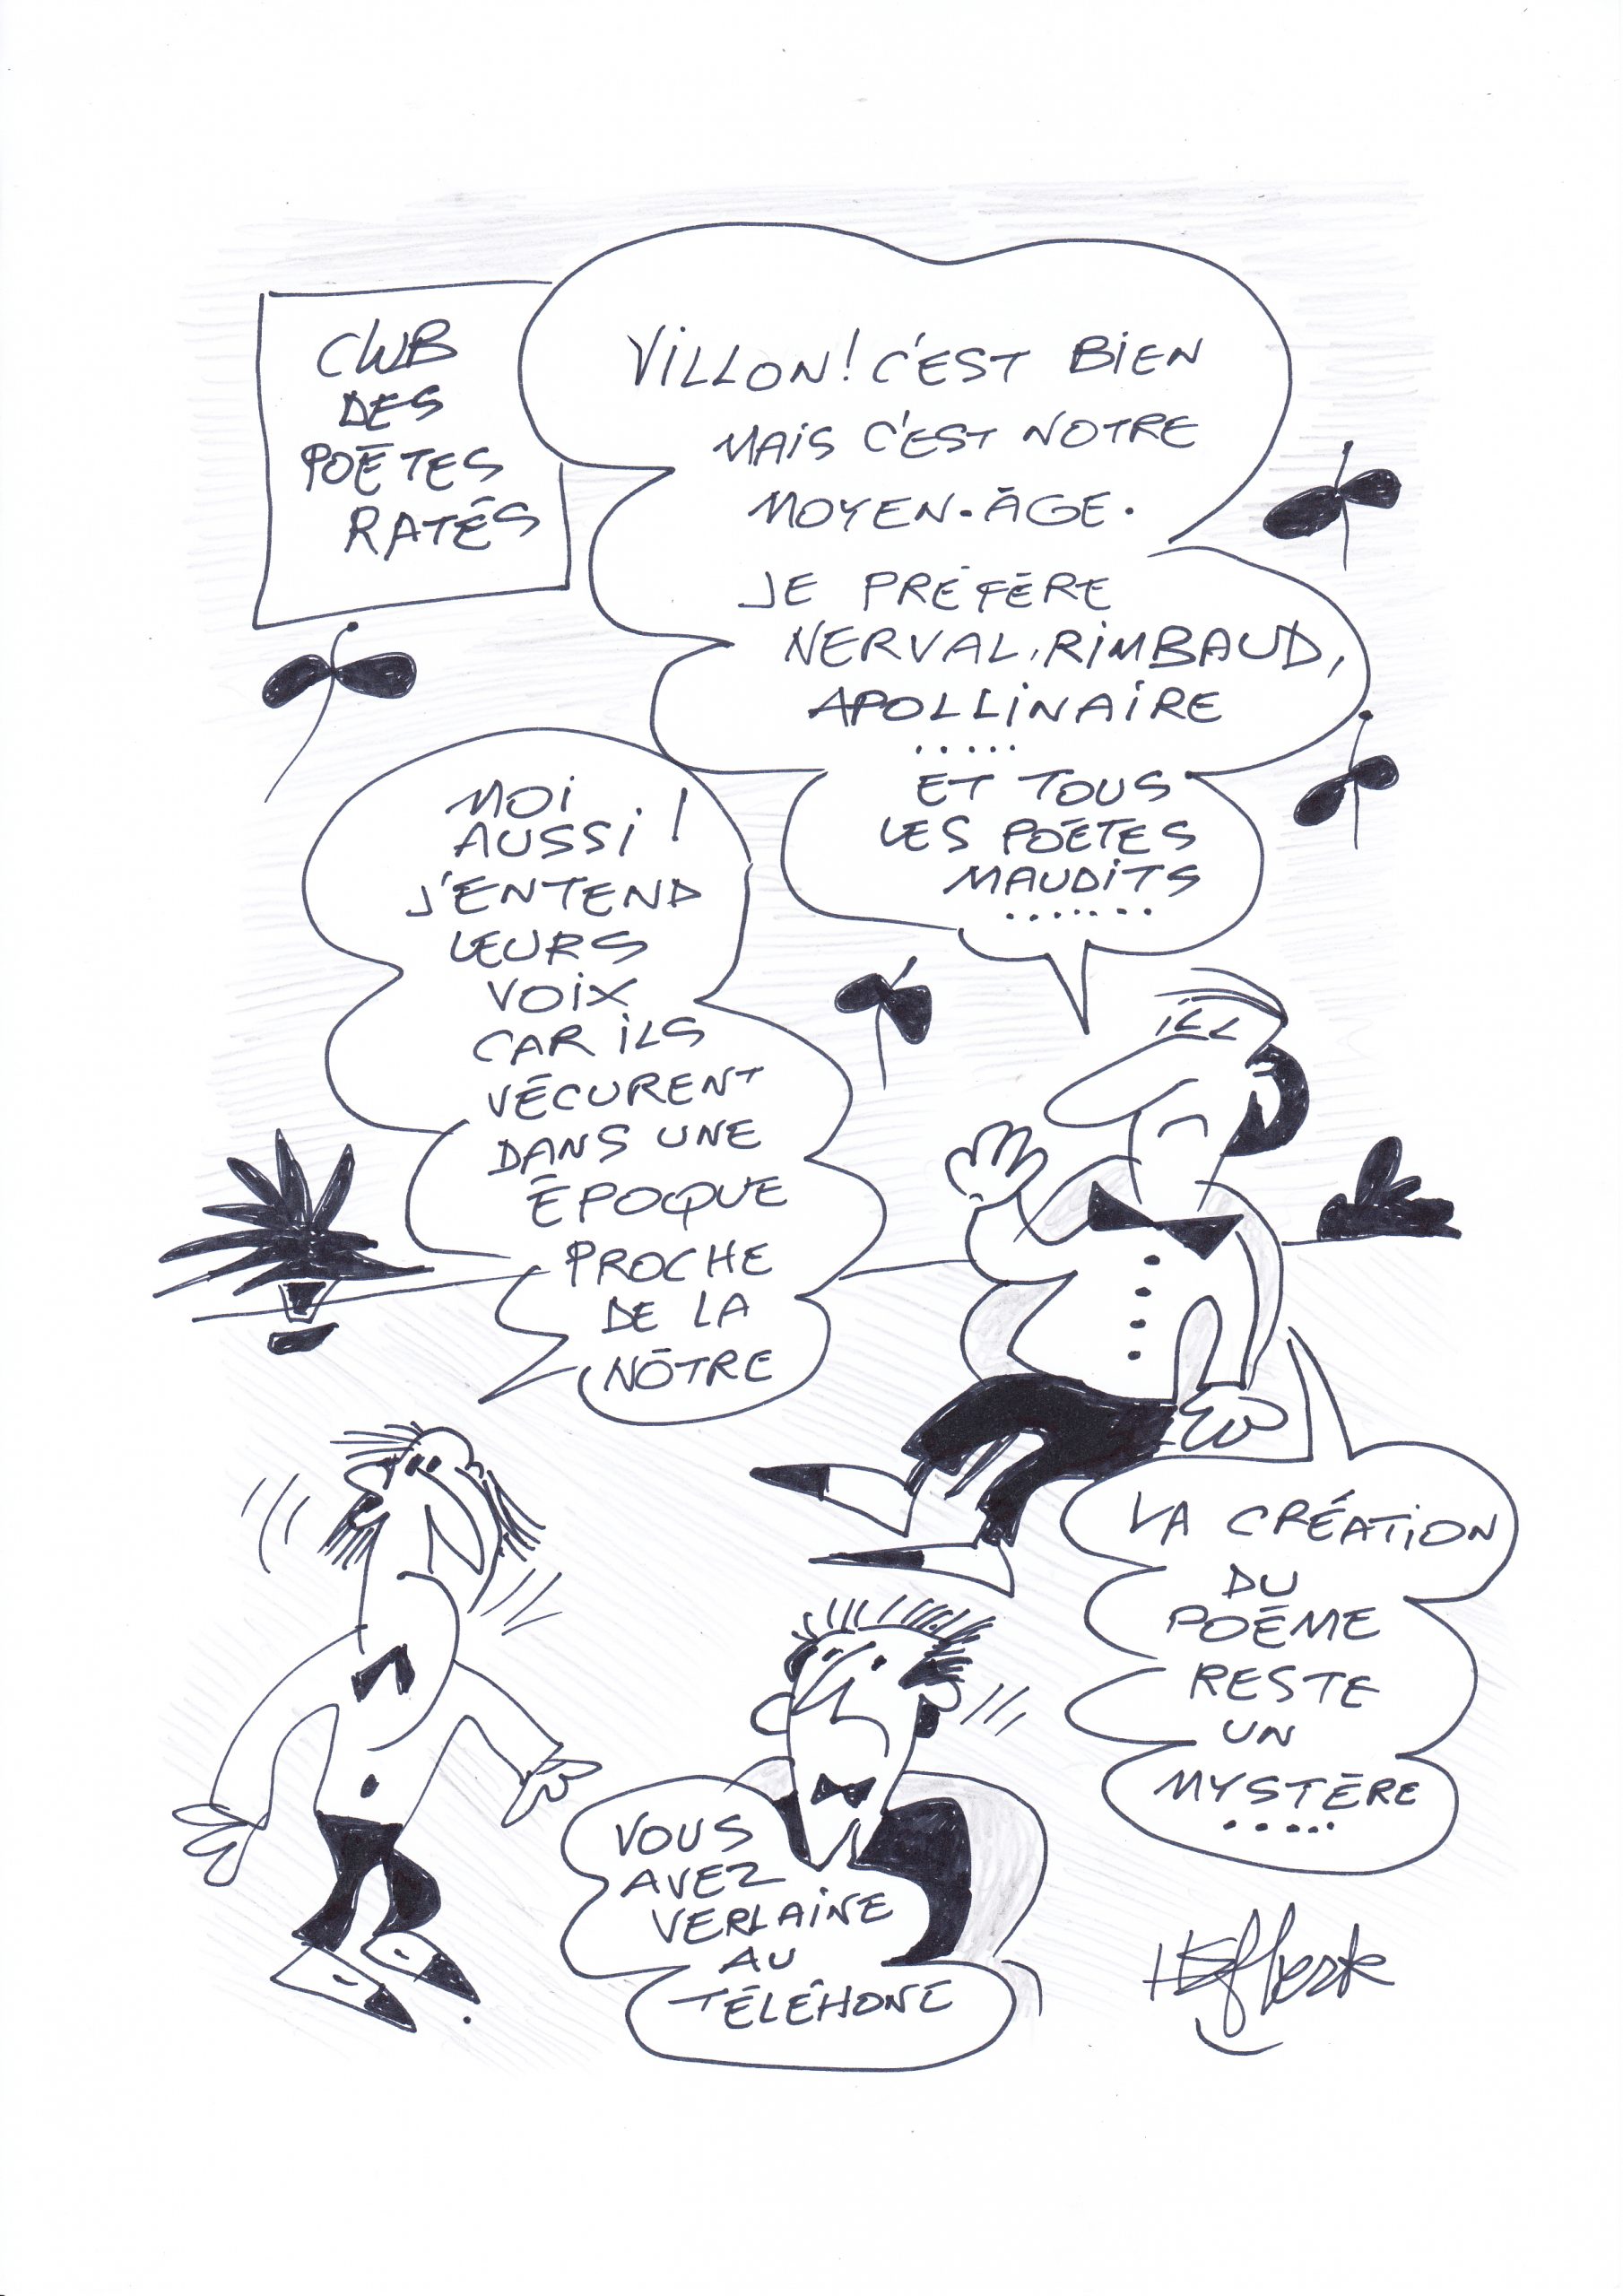 CLUB
DES
POÈTES
RATÉS
VILLON! C'EST BIEN
MAIS C'EST NOTRE
MOYEN-ÂGE.
JE PRÉFÈRE
NERVAL, RIMBAUD,
APOLLINAIRE
.....
ET TOUS
LES POÈTES
MAUDITS
.......
MOI
AUSSI!
J'ENTEND
LEURS
VOIX
CAR ILS
VÉCURENT
DANS UNE
ÉPOQUE
PROCHE
DE LA
NÔTRE
LA CRÉATION
DU
POÈME
RESTE
UN
MYSTÈRE
.....
VOUS
AVEZ
VERLAINE
AU
TÉLÉHONE